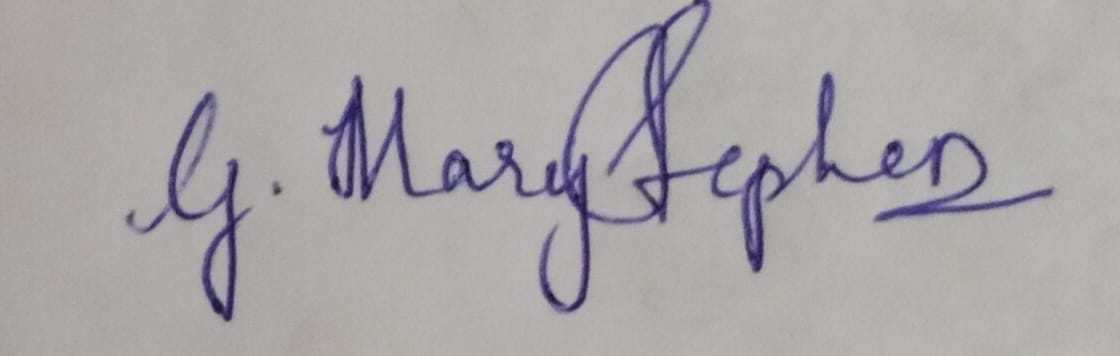 G. Mary Stephen